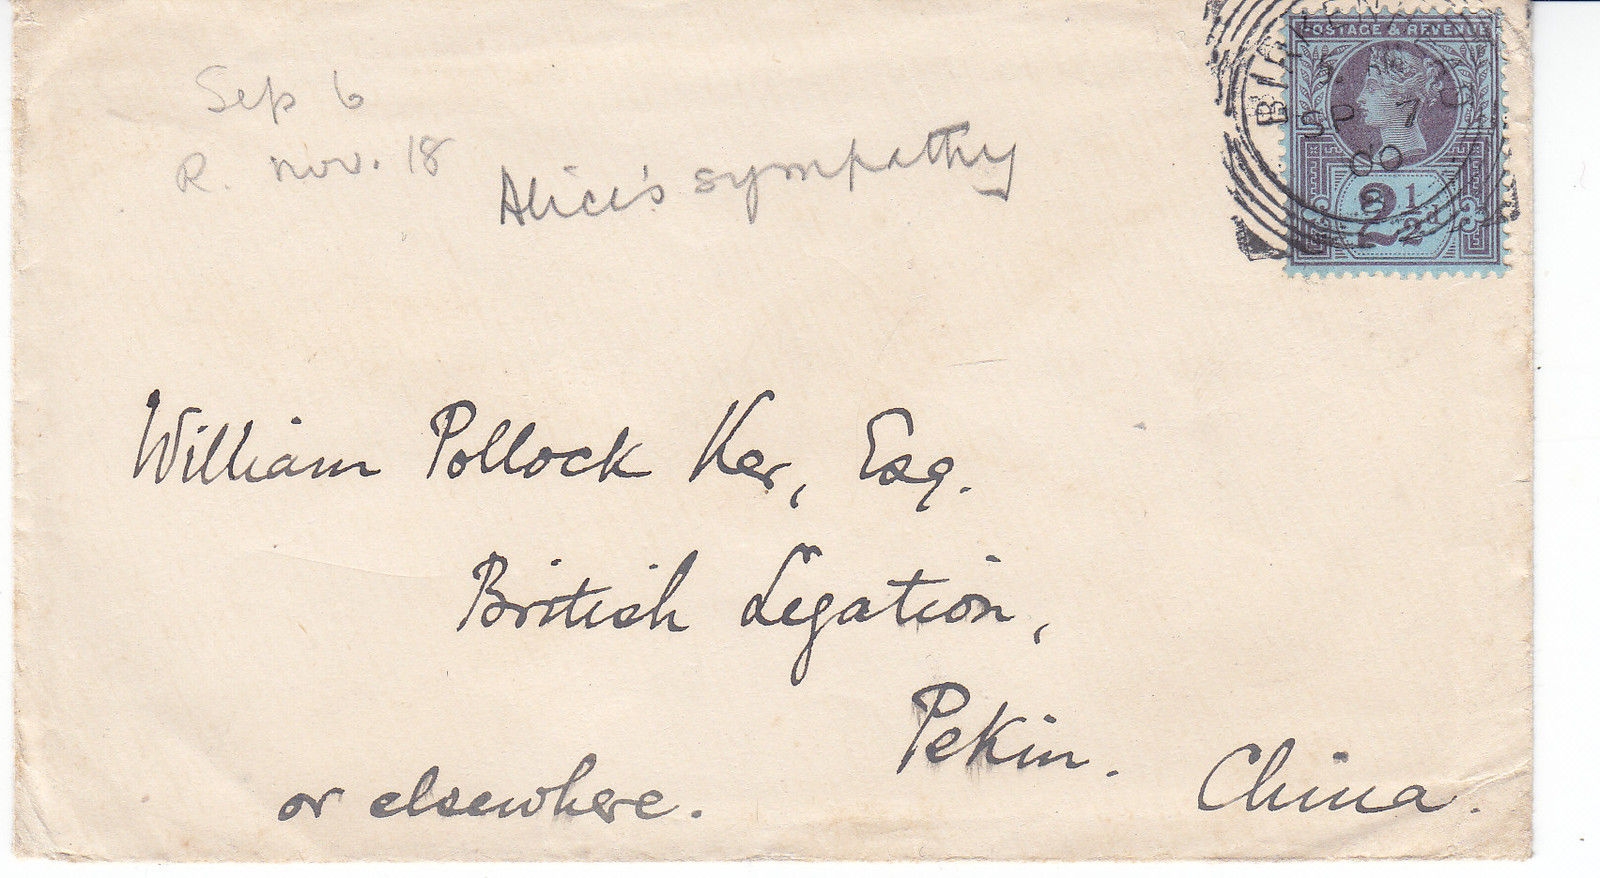 Sep 6
R. Nov. 18
Alice's sympathy
POSTAGE & REVENUE
BIRKENHEAD
SP 7
00
8
2½d
William Pollock Ker, Esq.
British Legation,
Pekin.
China.
or elsewhere.